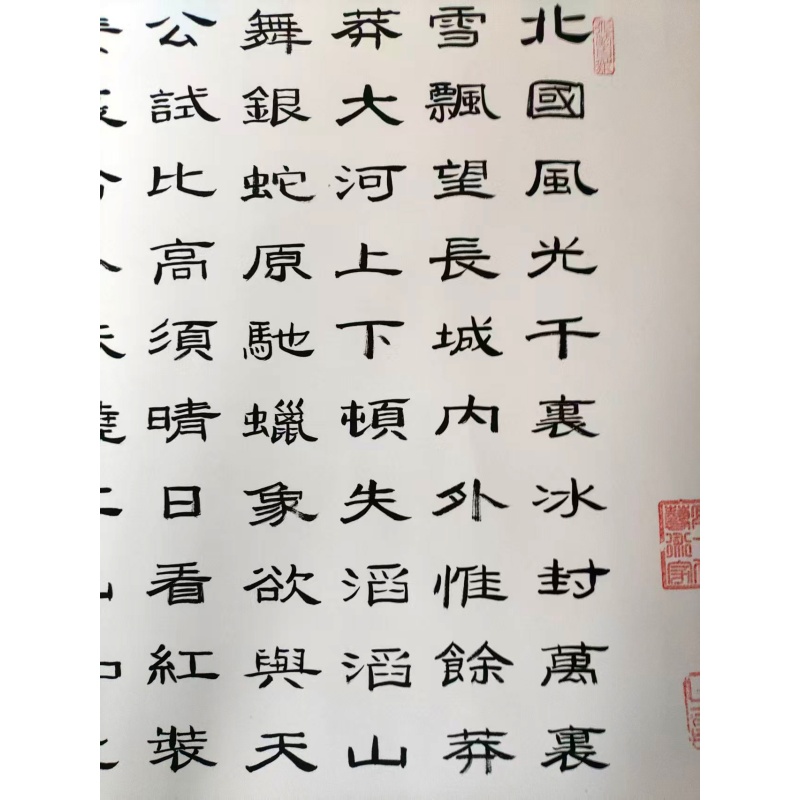 北國風光千裏冰封萬裏
雪飄望長城内外惟餘莽
莽大河上下頓失滔滔山
舞銀蛇原馳蠟象欲與天
公試比高須晴日看紅裝